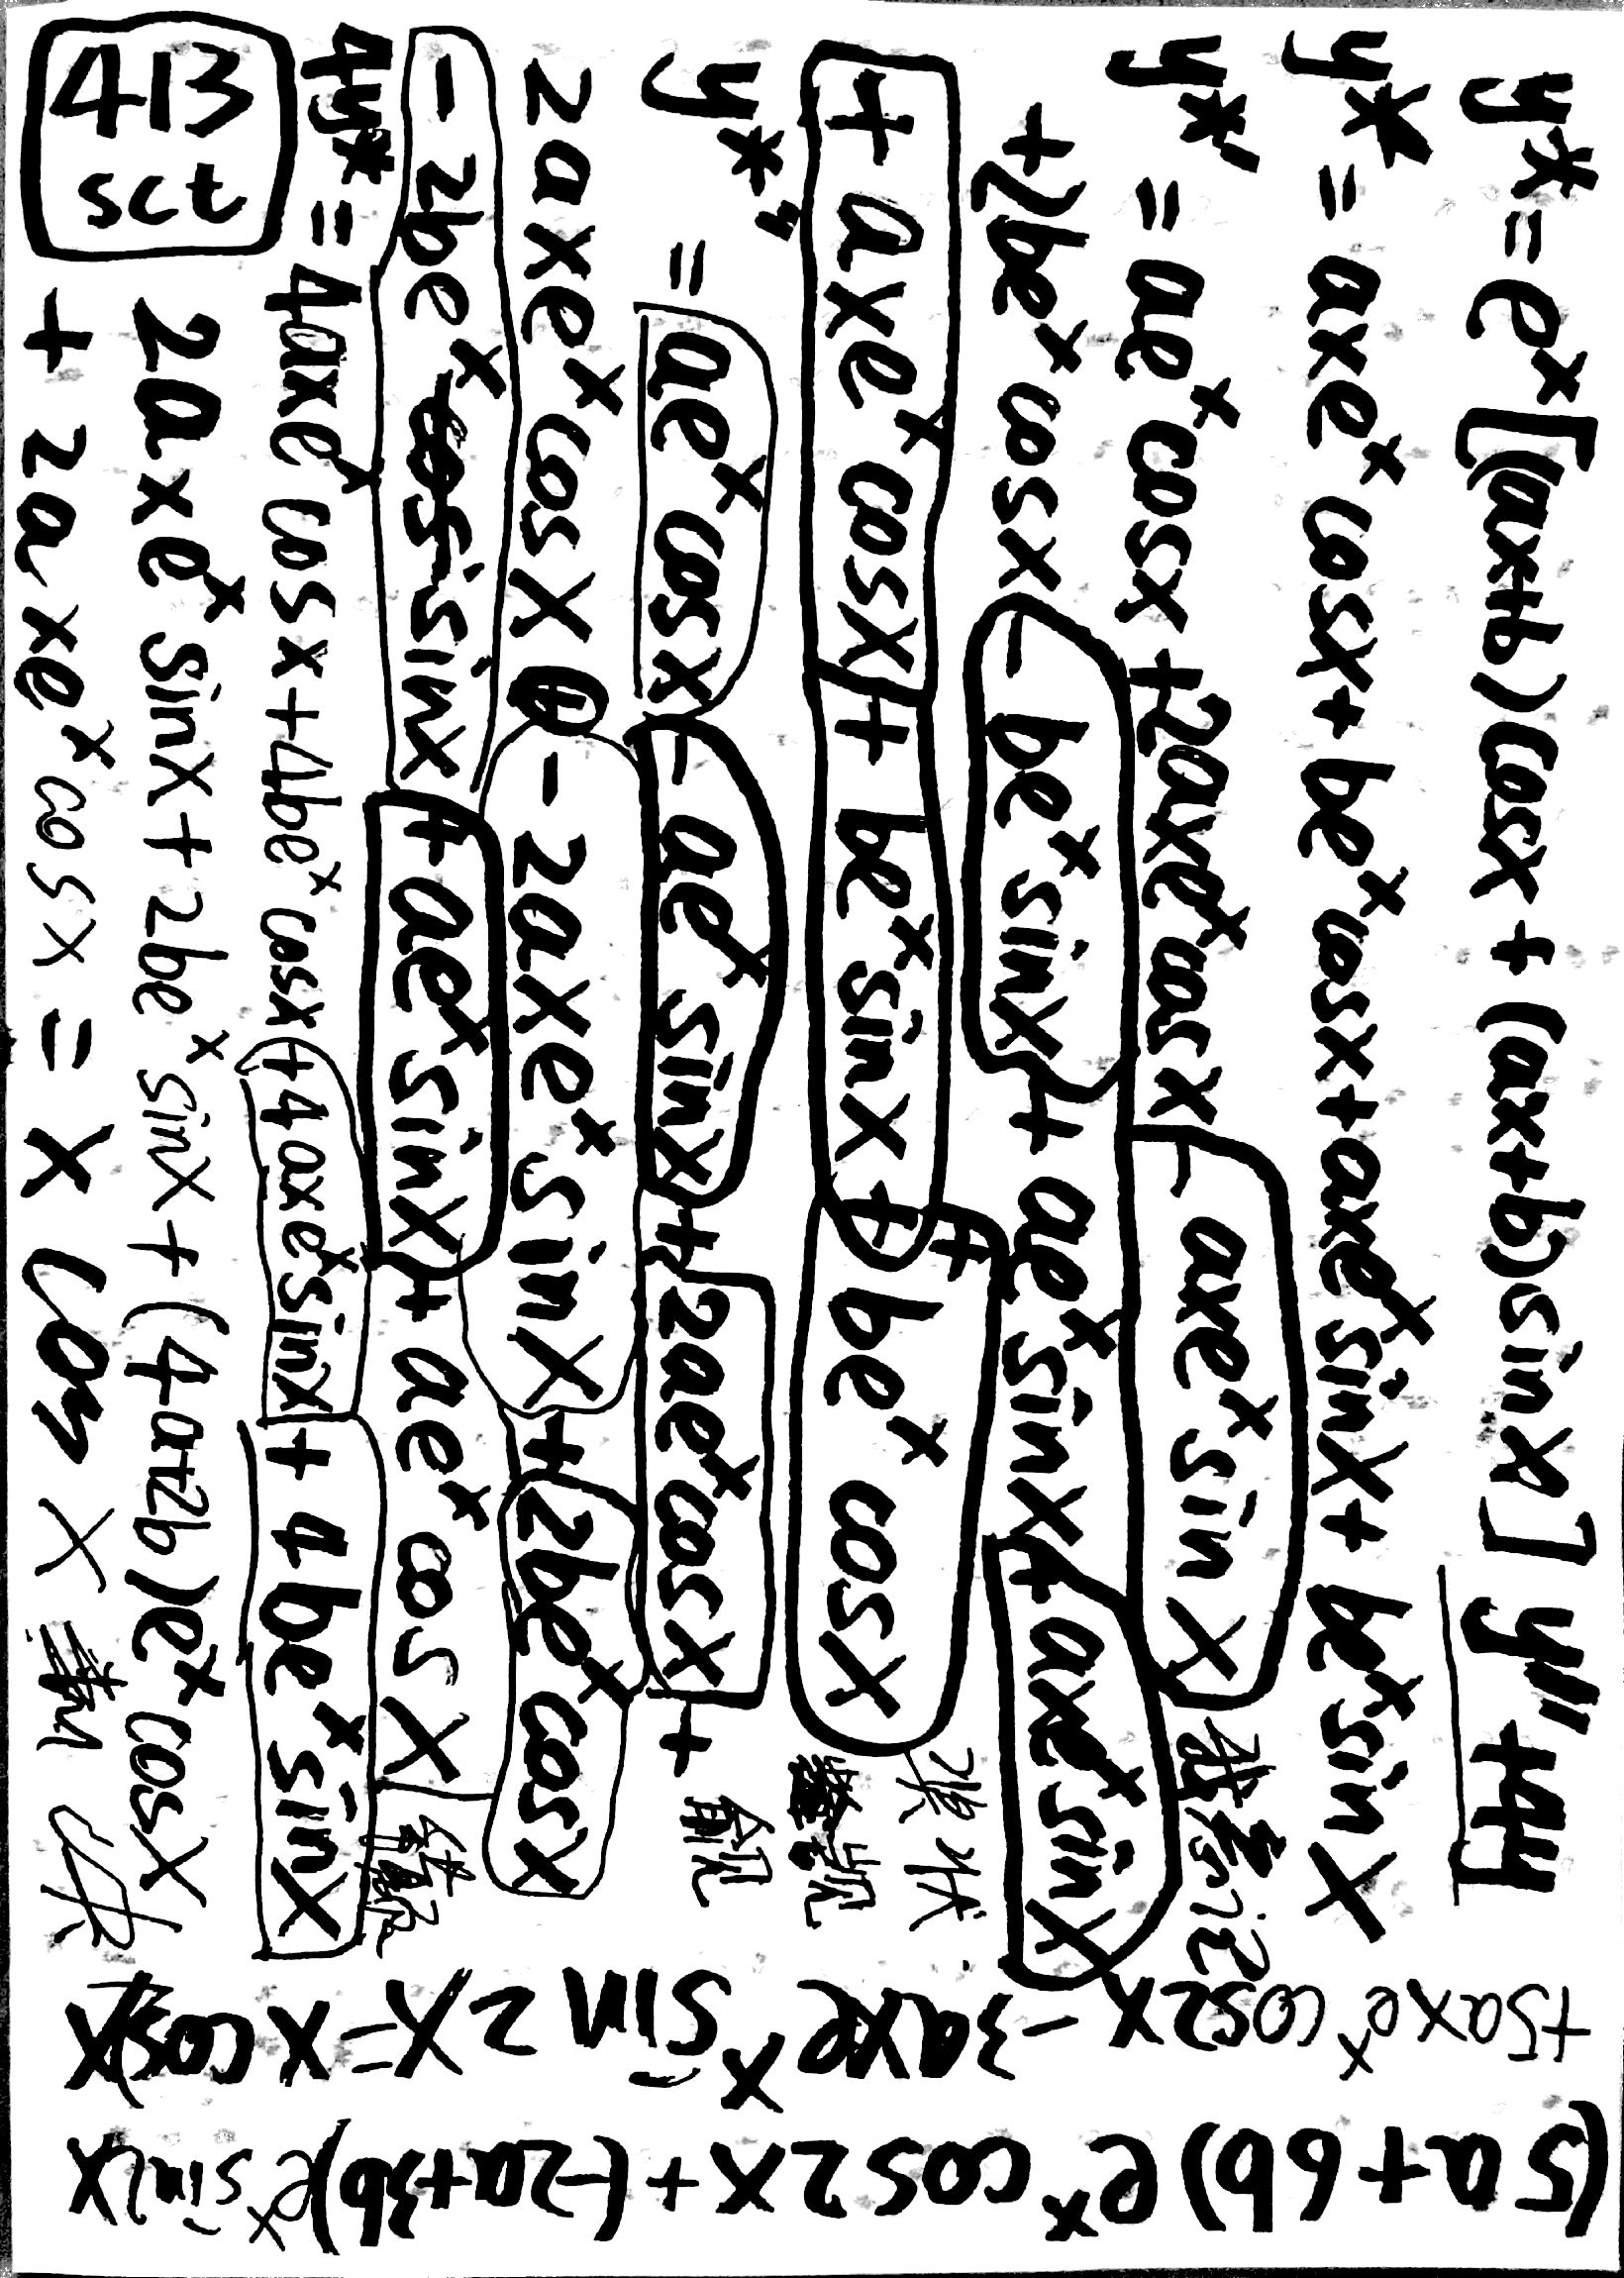 y* = e^x[(ax+b)cosx + (ax+b)sinx] y''+4y
y* = axe^x cosx + be^x cosx + axe^x sinx + be^x sinx
y*' = ae^x cosx + 2axe^x cosx - axe^x sinx
+2be^x cosx - be^x sinx + ae^x sinx + axe^x sinx
+ axe^x cosx + be^x sinx + + be^x cosx
y*'' = ae^x cosx - ae^x sinx + 2ae^x cosx +
2axe^x cosx - 2axe^x sinx + 2be^x cosx
- 2be^x sinx + ae^x sinx + ae^x cosx
4y* = 4axe^x cosx + 4be^x cosx + 4axe^x sinx + 4be^x sinx
2axe^x sinx + 2be^x sinx + (4a+2b)e^x cosx
+ 2axe^x cosx = x cos x
413
sct
(5a+6b)e^x cos2x + (-2a+3b)e^x sin2x
+5axe^x cos2x - 3axe^x sin2x = x cosx